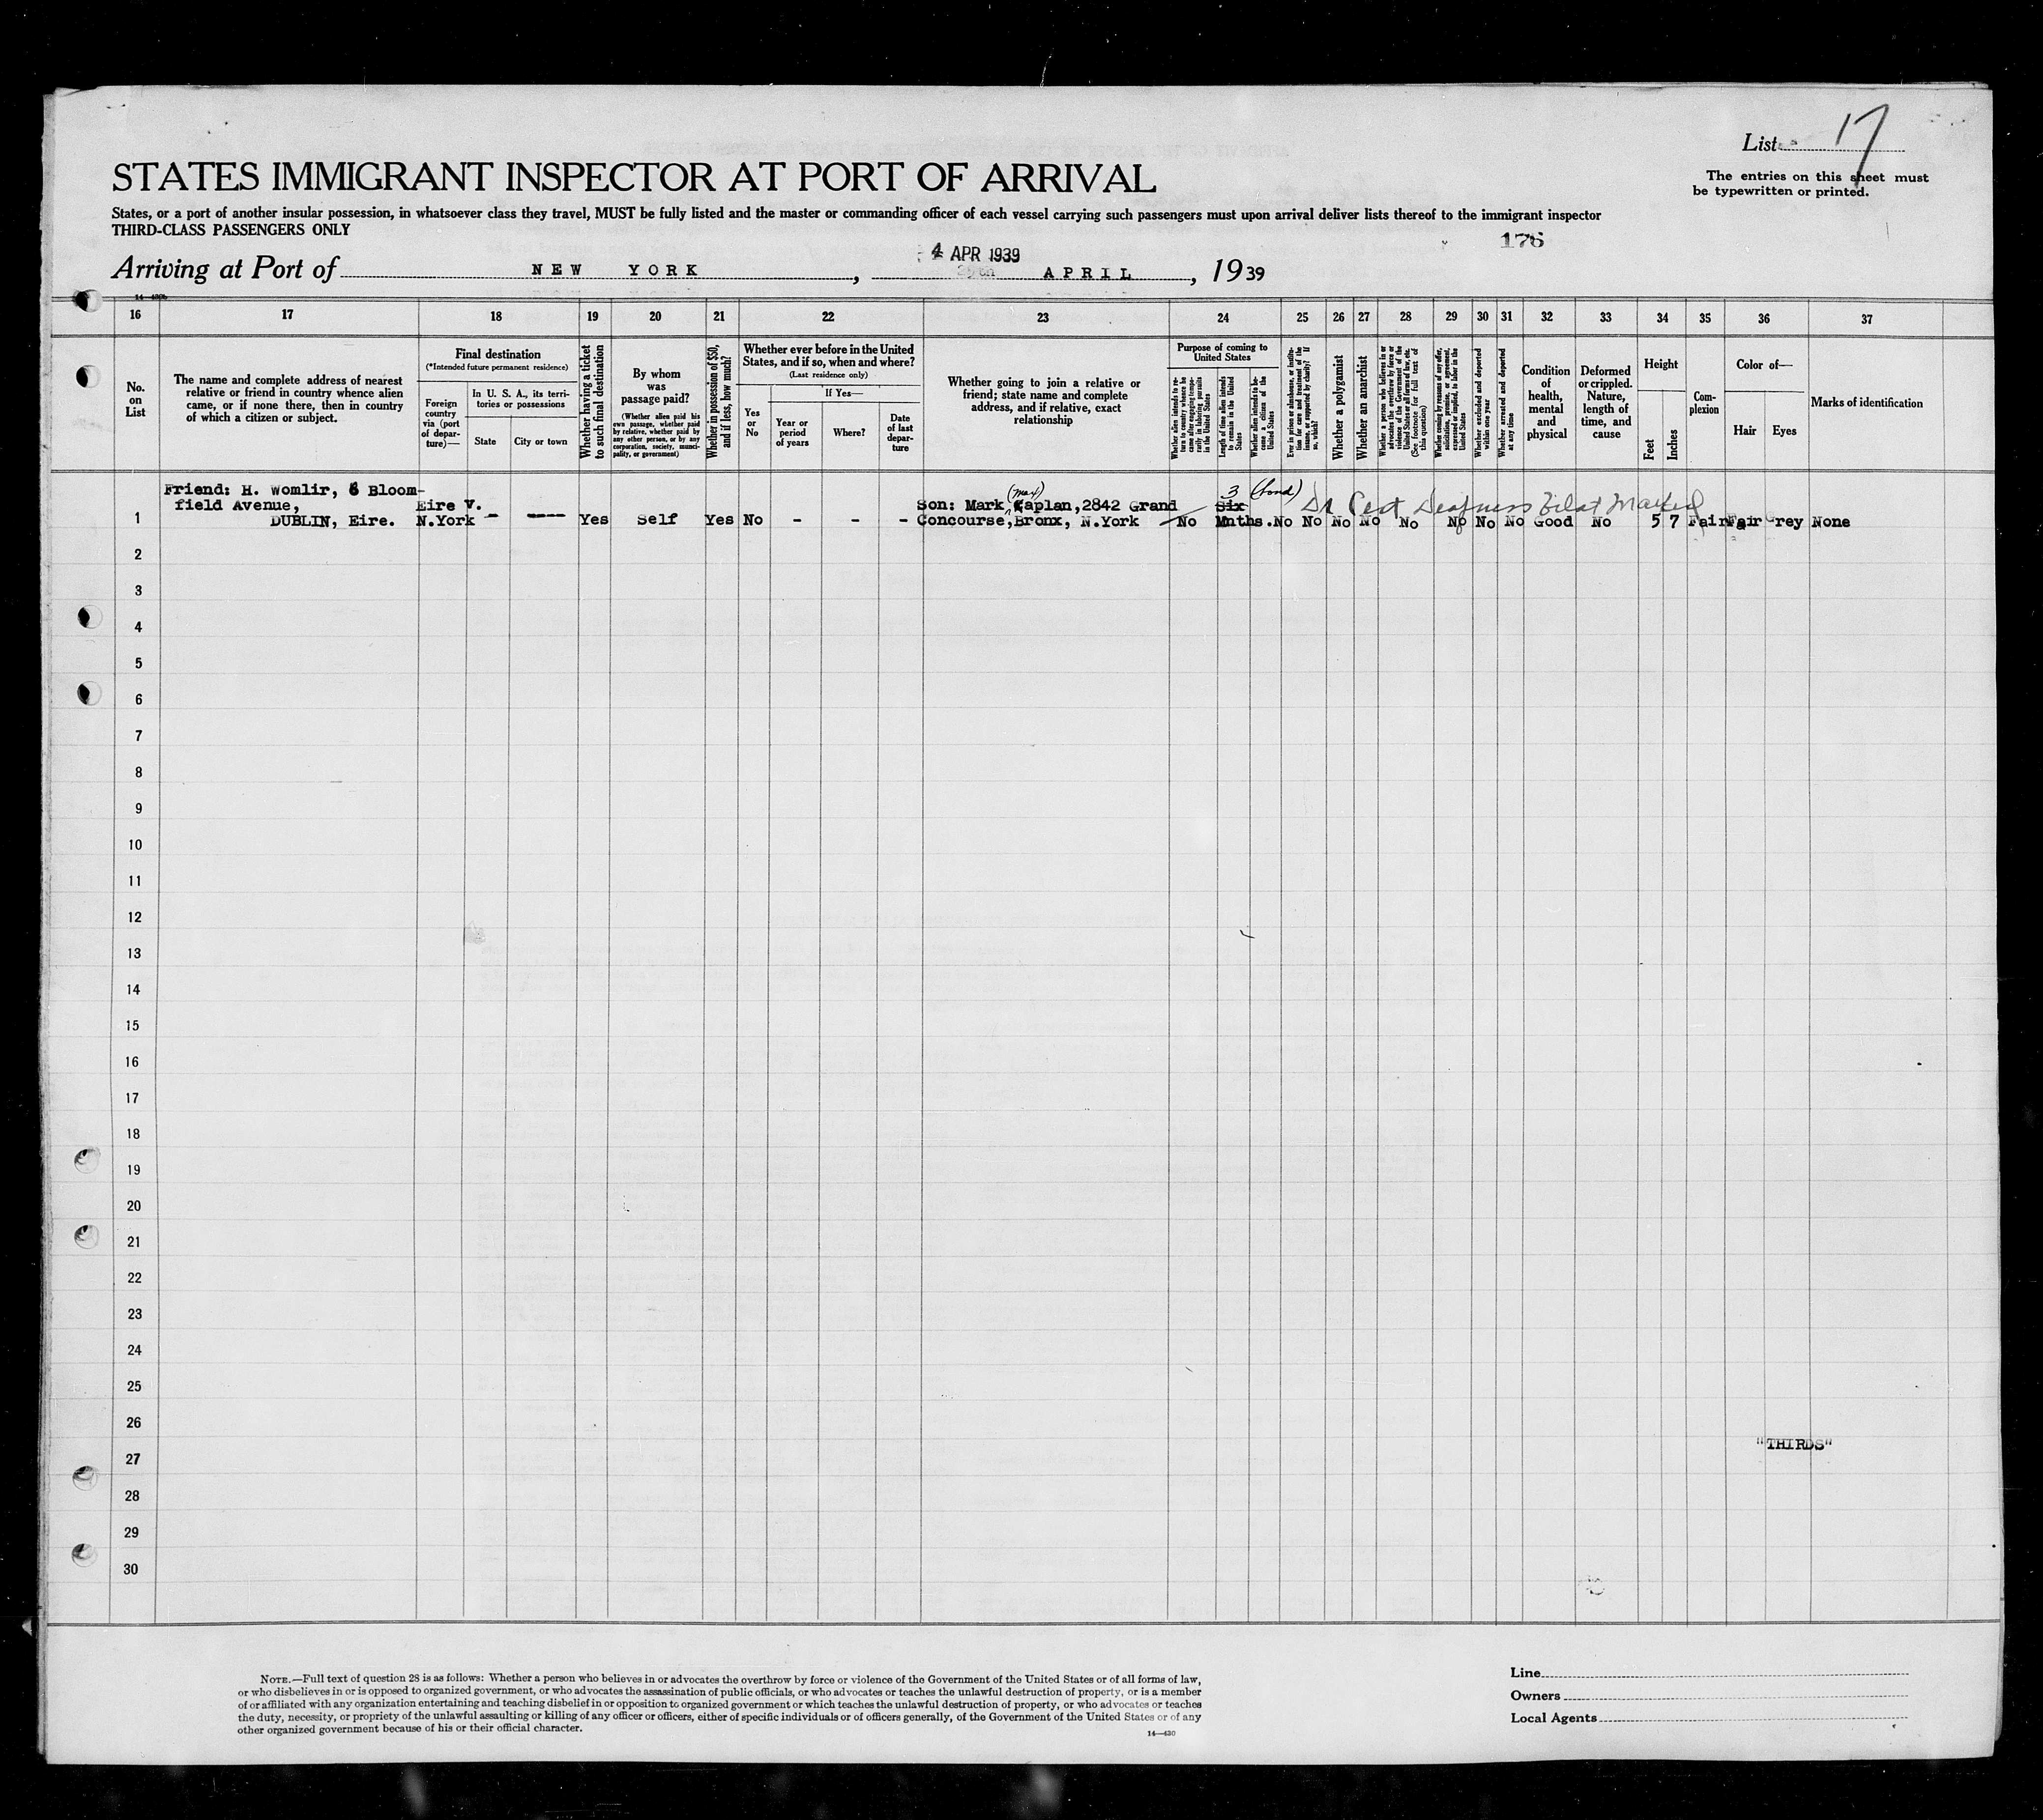 List 17
The entries on this sheet must
be typewritten or printed.
STATES IMMIGRANT INSPECTOR AT PORT OF ARRIVAL
States, or a port of another insular possession, in whatsoever class they travel, MUST be fully listed and the master or commanding officer of each vessel carrying such passengers must upon arrival deliver lists thereof to the immigrant inspector
THIRD-CLASS PASSENGERS ONLY
176
4 APR 1939
Arriving at Port of NEW YORK, APRIL, 1939
16 17 18 19 20 21 22 23 24 25 26 27 28 29 30 31 32 33 34 35 36 37
No.
on
List
The name and complete address of nearest
relative or friend in country whence alien
came, or if none there, then in country
of which a citizen or subject.
Final destination
(*Intended future permanent residence)
Foreign
country
via (port
of depar-
ture)—
In U. S. A., its terri-
tories or possessions
State
City or town
Whether having a ticket
to such final destination
By whom
was
passage paid?
(Whether alien paid his
own passage, whether paid
by relative, whether paid by
any other person, or by any
corporation, society, munici-
pality, or government)
Whether in possession of $50,
and if less, how much?
Whether ever before in the United
States, and if so, when and where?
(Last residence only)
Yes
or
No
If Yes—
Year or
period
of years
Where?
Date
of last
depar-
ture
Whether going to join a relative or
friend; state name and complete
address, and if relative, exact
relationship
Purpose of coming to
United States
Whether alien intends to re-
turn to country whence he
came after engaging tempo-
rarily in laboring pursuits
in the United States
Length of time alien intends
to remain in the United
States
Whether alien intends to be-
come a citizen of the
United States
Ever in prison or almshouse, or institu-
tion for care and treatment of the
insane, or supported by charity? If
so, which?
Whether a polygamist
Whether an anarchist
Whether a person who believes in or
advocates the overthrow by force or
violence of the Government of the
United States or all forms of law, etc.
(See footnote for full text of
this question)
Whether coming by reasons of any offer,
solicitation, promise, or agreement,
expressed or implied, to labor in the
United States
Whether excluded and deported
within one year
Whether arrested and deported
at any time
Condition
of
health,
mental
and
physical
Deformed
or crippled.
Nature,
length of
time, and
cause
Height
Feet
Inches
Com-
plexion
Color of—
Hair
Eyes
Marks of identification
Friend: H. Womlir, 6 Bloom-
field Avenue,
DUBLIN, Eire.
Eire V.
N.York
- ---- Yes Self Yes No - - -
(max)
Son: Mark Kaplan, 2842 Grand
Concourse, Bronx, N.York
3 (bond)
Dr Cert Deafness Bilat Marked
No Six
Mnths. No No No No No No No No Good No 5 7 Fair Fair Grey None
1
2
3
4
5
6
7
8
9
10
11
12
13
14
15
16
17
18
19
20
21
22
23
24
25
26
"THIRDS"
27
28
29
30
NOTE.—Full text of question 28 is as follows: Whether a person who believes in or advocates the overthrow by force or violence of the Government of the United States or of all forms of law,
or who disbelieves in or is opposed to organized government, or who advocates the assassination of public officials, or who advocates or teaches the unlawful destruction of property, or is a member
of or affiliated with any organization entertaining and teaching disbelief in or opposition to organized government or which teaches the unlawful destruction of property, or who advocates or teaches
the duty, necessity, or propriety of the unlawful assaulting or killing of any officer or officers, either of specific individuals or of officers generally, of the Government of the United States or of any
other organized government because of his or their official character.
14—430
Line
Owners
Local Agents